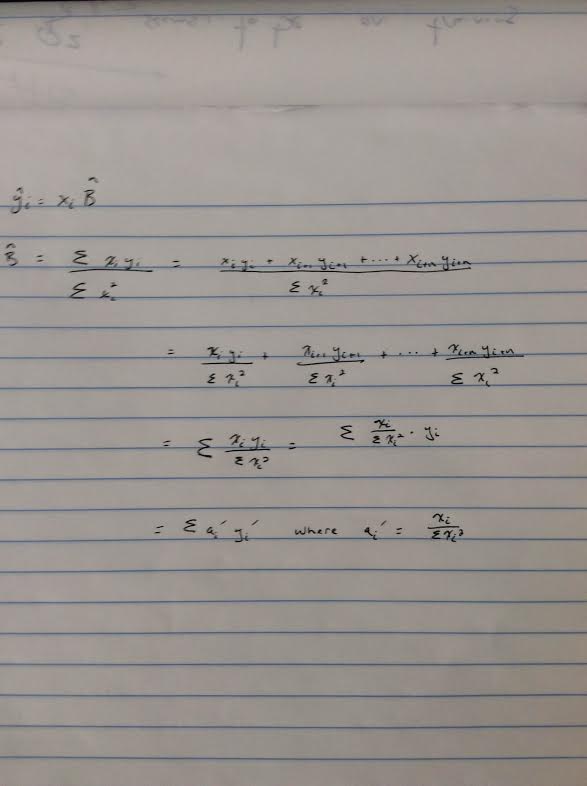 ŷᵢ = xᵢ B̂
B̂ = Σ xᵢ yᵢ / Σ xᵢ² = (xᵢ yᵢ + xᵢ₊₁ yᵢ₊₁ + ... + xᵢ₊ₙ yᵢ₊ₙ) / Σ xᵢ²
= xᵢ yᵢ / Σ xᵢ² + xᵢ₊₁ yᵢ₊₁ / Σ xᵢ² + ... + xᵢ₊ₙ yᵢ₊ₙ / Σ xᵢ²
= Σ xᵢ yᵢ / Σ xᵢ² = Σ xᵢ / Σ xᵢ² · yᵢ
= Σ aᵢ′ yᵢ′ where aᵢ′ = xᵢ / Σ xᵢ²